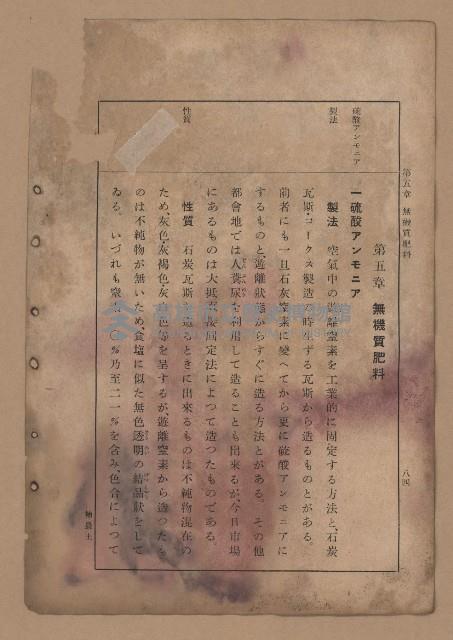 第五章 無機質肥料
八四
硫酸アンモニア
製法
性質
第五章 無機質肥料
一 硫酸アンモニア
製法 空氣中の遊離窒素を工業的に固定する方法と、石炭
瓦斯・コークス製造の時生ずる瓦斯から造るものとがある。
前者にも一旦石灰窒素に變へてから更に硫酸アンモニアに
するものと、遊離狀態からすぐに造る方法とがある。その他
都會地では人糞尿を利用して造ることも出來るが、今日市場
にあるものは大抵直接固定法によつて造つたものである。
性質 石炭瓦斯 造るときに出來るものは不純物混在の
ため、灰色・灰褐色 灰 色等を呈するが、遊離窒素から造つたも
のは不純物が無いため、食塩に似た無色透明の結晶狀をして
ゐる。いづれも窒素 〇%乃至二一%を含み、色合によつて
高雄市立歷史博物館